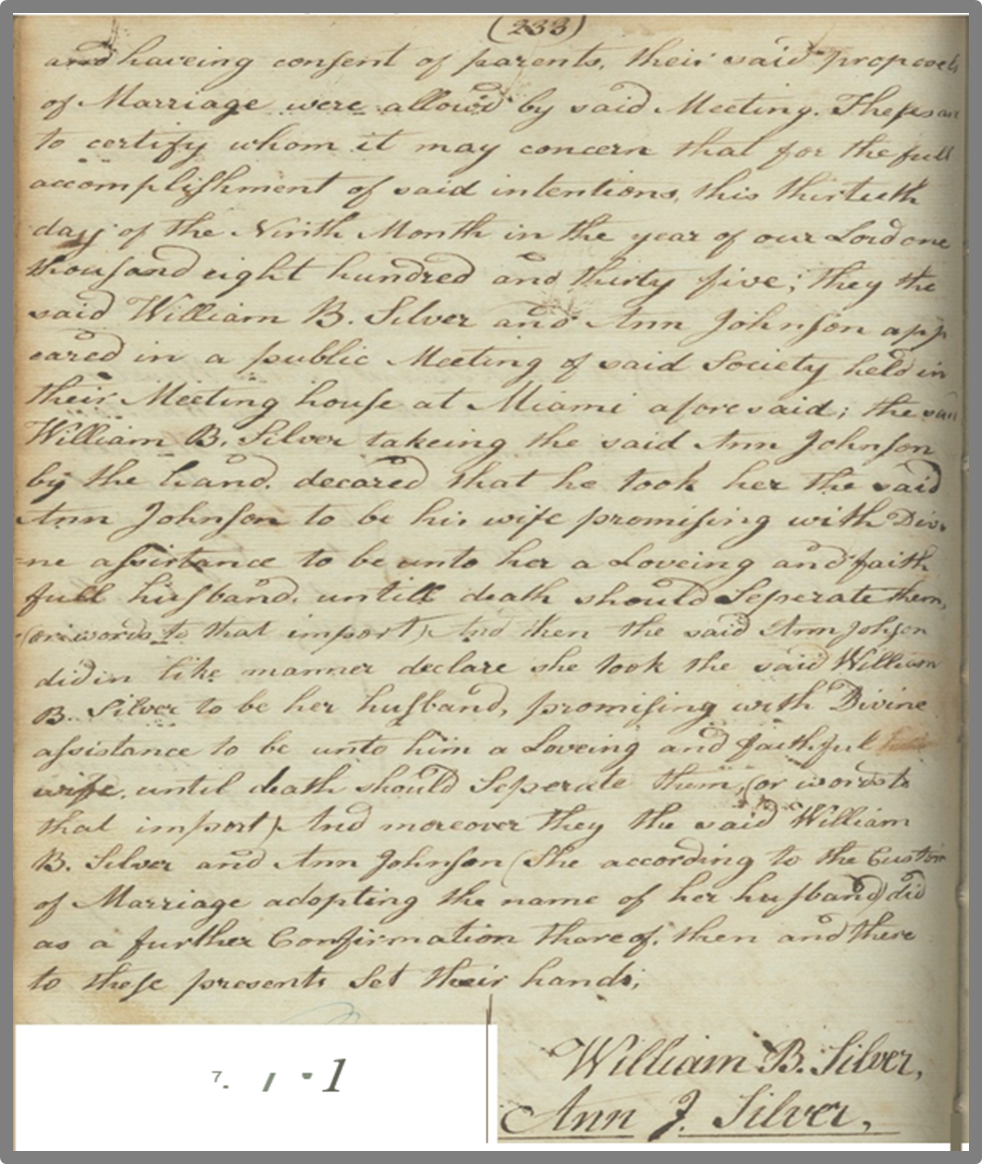 (233)
and haveing consent of parents, their said proposals
of Marriage were allow'd by said Meeting. These are
to certify whom it may concern that for the full
accomplishment of said intentions, this thirtieth
day of the Ninth Month in the year of our Lord one
thousand eight hundred and thirty five; they the
said William B. Silver and Ann Johnson app
eared in a public Meeting of said Society held in
their Meeting house at Miami aforesaid; the said
William B. Silver takeing the said Ann Johnson
by the hand. decared that he took her the said
Ann Johnson to be his wife promising with Divi
=ne assistance to be unto her a Loveing and faith
full husband. untill death should Seperate them,
(or words to that import) And then the said Ann Johson
did in like manner declare she took the said William
B. Silver to be her husband, promising with Divine
assistance to be unto him a Loveing and faithful
wife. until death should Seperate them, (or words to
that import) And moreover they the said William
B. Silver and Ann Johnson (she according to the Custom
of Marriage adopting the name of her husband) did
as a further Confirmation thereof, then and there
to these presents Set their hands;
William B. Silver,
Ann J. Silver,
7. 1